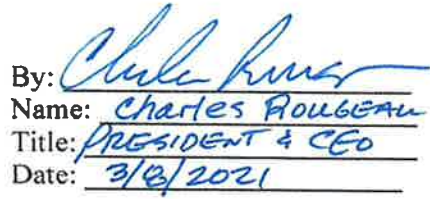 By:
Name: Charles Rougeau
Title: PRESIDENT & CEO
Date: 3/8/2021